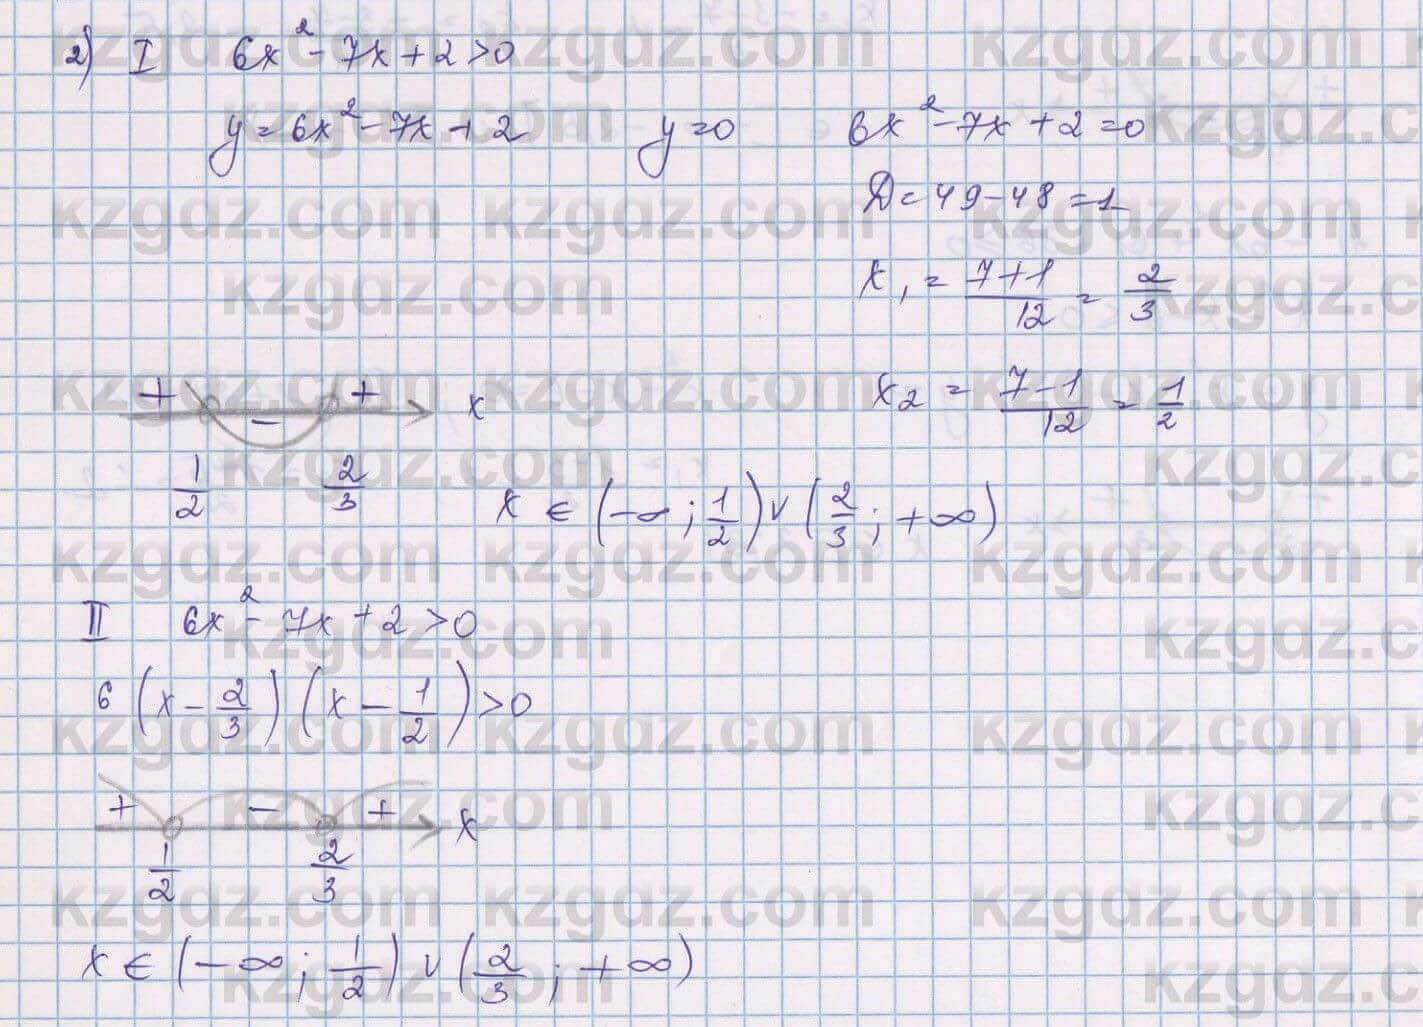 2) I 6x² - 7x + 2 > 0
y = 6x² - 7x + 2 y = 0 6x² - 7x + 2 = 0
D = 49 - 48 = 1
x₁ = (7+1)/12 = 2/3
+ - + x
x₂ = (7-1)/12 = 1/2
1/2 2/3
x ∈ (-∞; 1/2) ∨ (2/3; +∞)
II 6x² - 7x + 2 > 0
6 (x - 2/3) (x - 1/2) > 0
+ - + x
1/2 2/3
x ∈ (-∞; 1/2) ∨ (2/3; +∞)
kzgdz.com